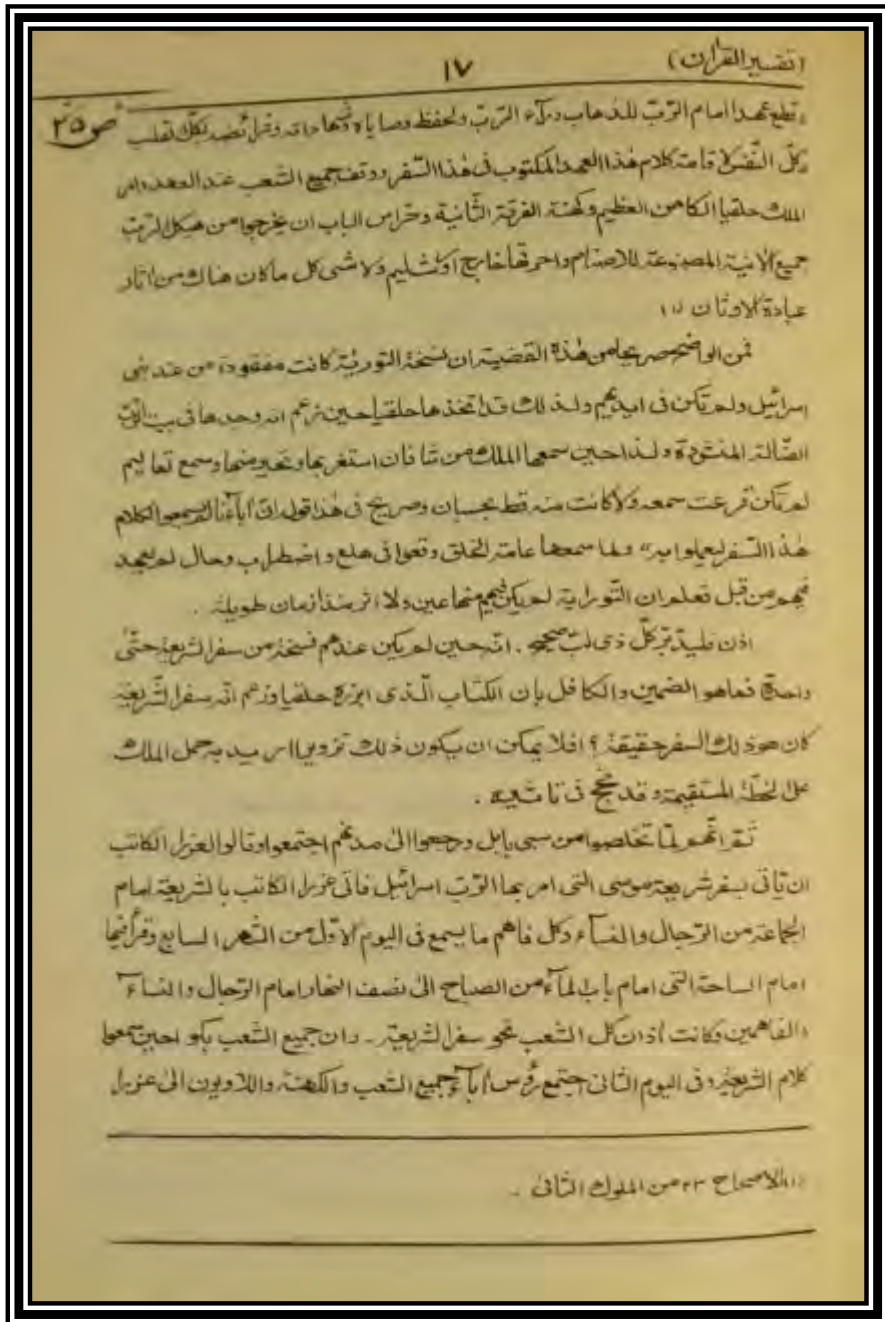 (تفسير القرآن) ١٧
وقطع عهدا امام الرّبّ للذهاب ورآء الرّبّ ولحفظ وصاياه وشهاداته وفرائضه بكلّ القلب ص ٣٥
وكلّ النّفس لاقامة كلام هٰذا العهد المكتوب فى هٰذا السّفر ووقف جميع الشعب عند العهد وامر
الملك حلقيا الكاهن العظيم وكهنة الفرقة الثّانية وحرّاس الباب ان يخرجوا من هيكل الرّبّ
جميع الآنية المصنوعة للاصنام واحرقها خارج اورشليم ولاشى كل ما كان هناك من اثار
عبادة الاوثان (١)
فمن الواضح صريحا من هٰذه القضية ان نسخة التورية كانت مفقودة من عند بنى
اسرائيل ولم تكن فى ايديهم ولذلك قد اتخذها حلقيا حين زعم انه وجدها فى بيت الرّبّ
الضّالة المنشودة ولذا حين سمعها الملك من شافان استغربها وتحير منها وسمع تعاليم
لم تكن قرعت سمعه ولا كانت منه قط بحسبان وصريح فى هٰذا قوله انّ آباءنا لم يسمعوا لكلام
هٰذا السّفر ليعملوا به" ولما سمعها عامة الخلق وقعوا فى هلع واضطراب وحال لم يعهد
فيهم من قبل فعلم ان التّوراية لم يكن فيهم منها عين ولا اثر منذ ازمان طويلة .
اذن فليتدبّر كلّ ذى لبّ صحيح . انّه حين لم يكن عندهم نسخة من سفر الشريعة حتّىٰ
واحدة فما هو الضمين والكافل بان الكتاب الّذى ابرزه حلقيا وزعم انّه سفر الشّريعة
كان هو ذلك السفر حقيقة ؟ افلا يمكن ان يكون ذلك تزويرا اريد به حمل الملك
علىٰ الخطّة المستقيمة وقد نجح فى تاثيره .
ثمّ انّهم لمّا تخلصوا من سبى بابل ورجعوا الىٰ مدنهم اجتمعوا وقالوا لعزرا الكاتب
ان يّاتى بسفر شريعة موسى التى امر بها الرّبّ اسرائيل فاتى عزرا الكاتب بالشريعة امام
الجماعة من الرّجال والنسآء وكل فاهم ما يسمع فى اليوم الاوّل من الشهر السابع وقرأ فيها
امام الساحة التى امام باب المآء من الصباح الىٰ نصف النهار امام الرّجال والنسآء
والفاهمين وكانت اٰذان كل الشعب نحو سفر الشريعة ـ وان جميع الشّعب بكوا حين سمعوا
كلام الشريعة وفى اليوم الثانى اجتمع رؤس اٰباء جميع الشعب والكهنة واللاويون الىٰ عزرا
(١) الاصحاح ٢٣ من الملوك الثانى .